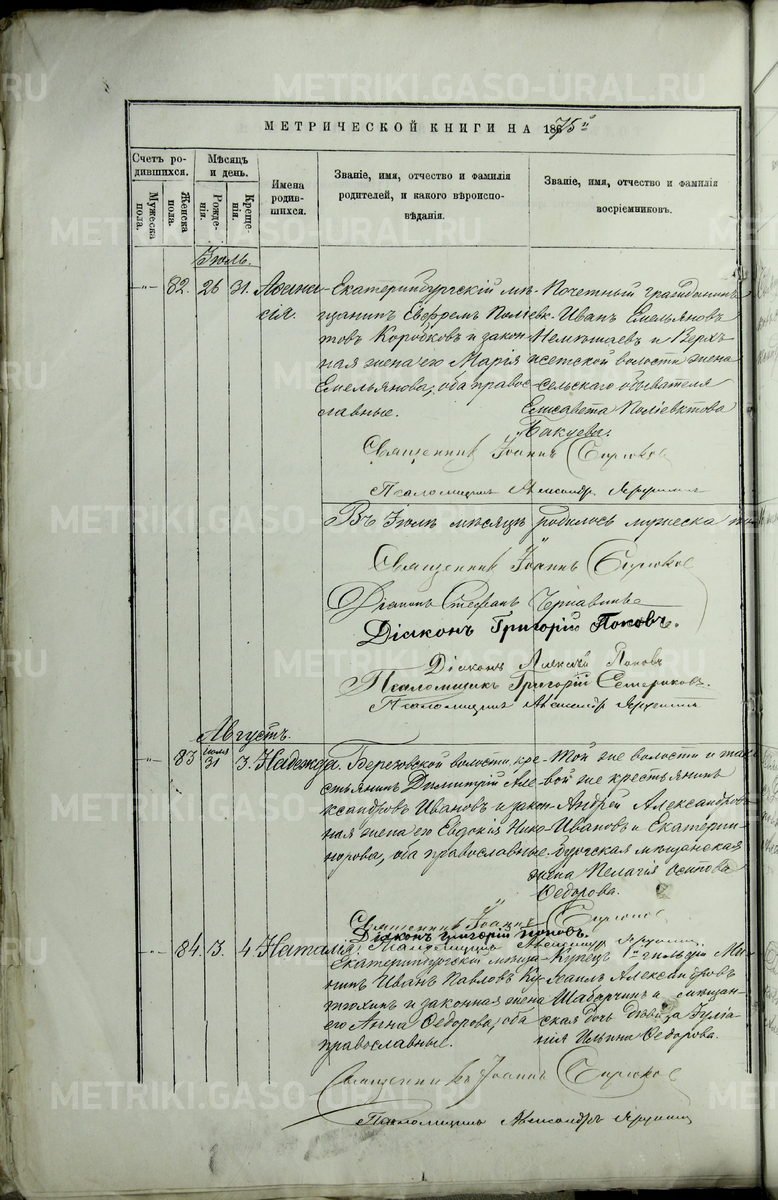 МЕТРИЧЕСКОЙ КНИГИ НА 1875й
Счетъ ро-
дившихся.
Мужеска
пола.
Женска
пола.
Мѣсяцъ
и день.
Рожде-
нія.
Креще-
нія.
Имена
родив-
шихся.
Званіе, имя, отчество и фамилія
родителей, и какого вѣроиспо-
вѣданія.
Званіе, имя, отчество и фамилія
воспріемниковъ.
Іюль.
82. 26 31. Аѳана-
сія.
Екатеринбургскій мѣ-
щанинъ Евфремъ Поліевк-
товъ Коробковъ и закон
ная жена его Марія
Емельянова, оба правос-
лавные.
Почетный гражданинъ
Иванъ Емельяновъ
и Верхъ
исетской волости жена
сельскаго обывателя
Елисавета Поліевктова
Священникъ Іоаннъ Сирюковъ
Псаломщикъ Александръ
Въ Іюлѣ мѣсяцѣ родилось мужеска
Священникъ Іоаннъ Сирюковъ
Діаконъ Стефанъ
Діаконъ Григорій Поповъ.
Діаконъ Поповъ
Псаломщикъ Григорій Семериковъ.
Псаломщикъ Александръ
Августъ.
83 іюля
31 3. Надежда.
Березовской волости кре-
стьянинъ Димитрій Але-
ксандровъ Ивановъ и закон
ная жена его Евдокія Нико-
норова, оба православные.
Той же волости и так-
вой же крестьянинъ
Андрей Александровъ
Ивановъ и Екатерин-
бургская мѣщанская
жена Пелагія Осипова
Ѳедорова.
Священникъ Іоаннъ Сирюковъ
Діаконъ Григорій Поповъ.
Псаломщикъ Александръ
84. 3. 4. Наталія.
Екатеринбургскій мѣща-
нинъ Иванъ Павловъ Ку-
и законная жена
его Анна Ѳедорова, оба
православные.
Купецъ 1й гильдіи Ми-
хаилъ Александровъ
и мѣщан-
ская дочь дѣвица Іуліа-
нія Ильина Ѳедорова.
Священникъ Іоаннъ Сирюковъ
Псаломщикъ Александръ
METRIKI.GASO-URAL.RU